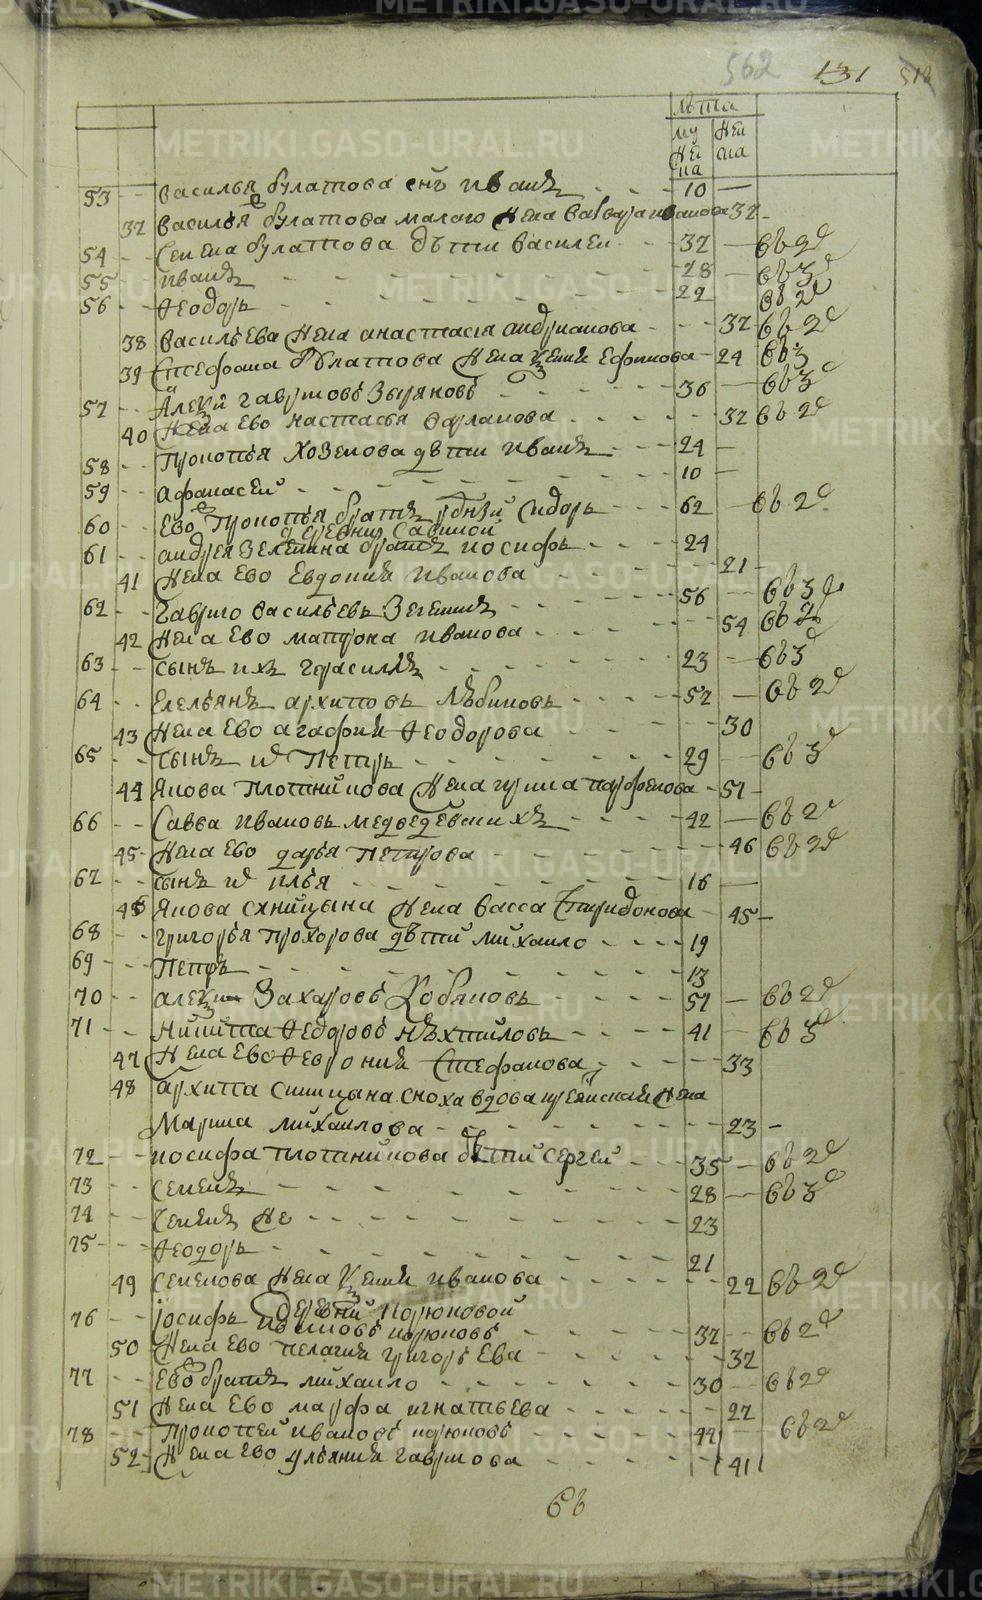 METRIKI.GASO-URAL.RU
562 131 512
лѣта
му жеска жен ска
53 Василья Булатова снъ Иванъ 10
37 Василья Булатова малаго жена Варвара Иванова 37
54 Семена Булатова дѣти Василей 32
55 Иванъ 28
56 Ѳеодоръ 22
38 Васильева жена Анастасия Андрианова 32
39 Стефана Булатова жена Ксения Ефимова 24
57 Алексѣй Гавриловъ Зыряновъ 36
40 жена ево Настасья Варламова 32
58 Прокопья Хозенова дѣти Иванъ 24
59 Афанасей 10
60 Ево Прокопья братъ родный Сидоръ 62
деревни Савиной
61 Андрея Зеленина братъ Иосифъ 24
41 жена ево Евдокия Иванова 21
62 Гаврило Васильевъ Зеленинъ 56
42 жена ево Матрона Иванова 54
63 сынъ ихъ Герасимъ 23
64 Емельянъ Архиповъ 52
43 жена ево Агафия Ѳеодорова 30
65 сынъ и Петръ 29
44 Якова Плотникова жена Ирина Парфенова 51
66 Савва Ивановъ Медведевских 42
45 жена ево Дарья Петрова 46
67 сынъ и Илья 16
46 Якова Синицына жена Васса Спиридонова 45
68 Григорья Прохорова дѣти Михаило 19
69 Петръ 13
70 Алексѣй Захаровъ Кобяковъ 51
71 Никита Ѳедоровъ 41
47 жена ево Феврония Стефанова 33
48 Архипа Синицына сноха вдова жена
Марина Михаилова 23
72 Иосифа Плотникова дѣти Сергей 35
73 Семенъ 28
74 Семенъ же 23
75 Ѳеодоръ 21
49 Семенова жена Ксения Иванова 22
деревни Корюковой
76 Иосифъ Ивановъ Корюковъ 37
50 жена ево Пелагия Григорьева 32
77 Ево братъ Михаило 30
51 жена ево Марфа Игнатьева 27
78 Прокопей Ивановъ Корюковъ 44
52 жена ево Ульяния Гаврилова 41